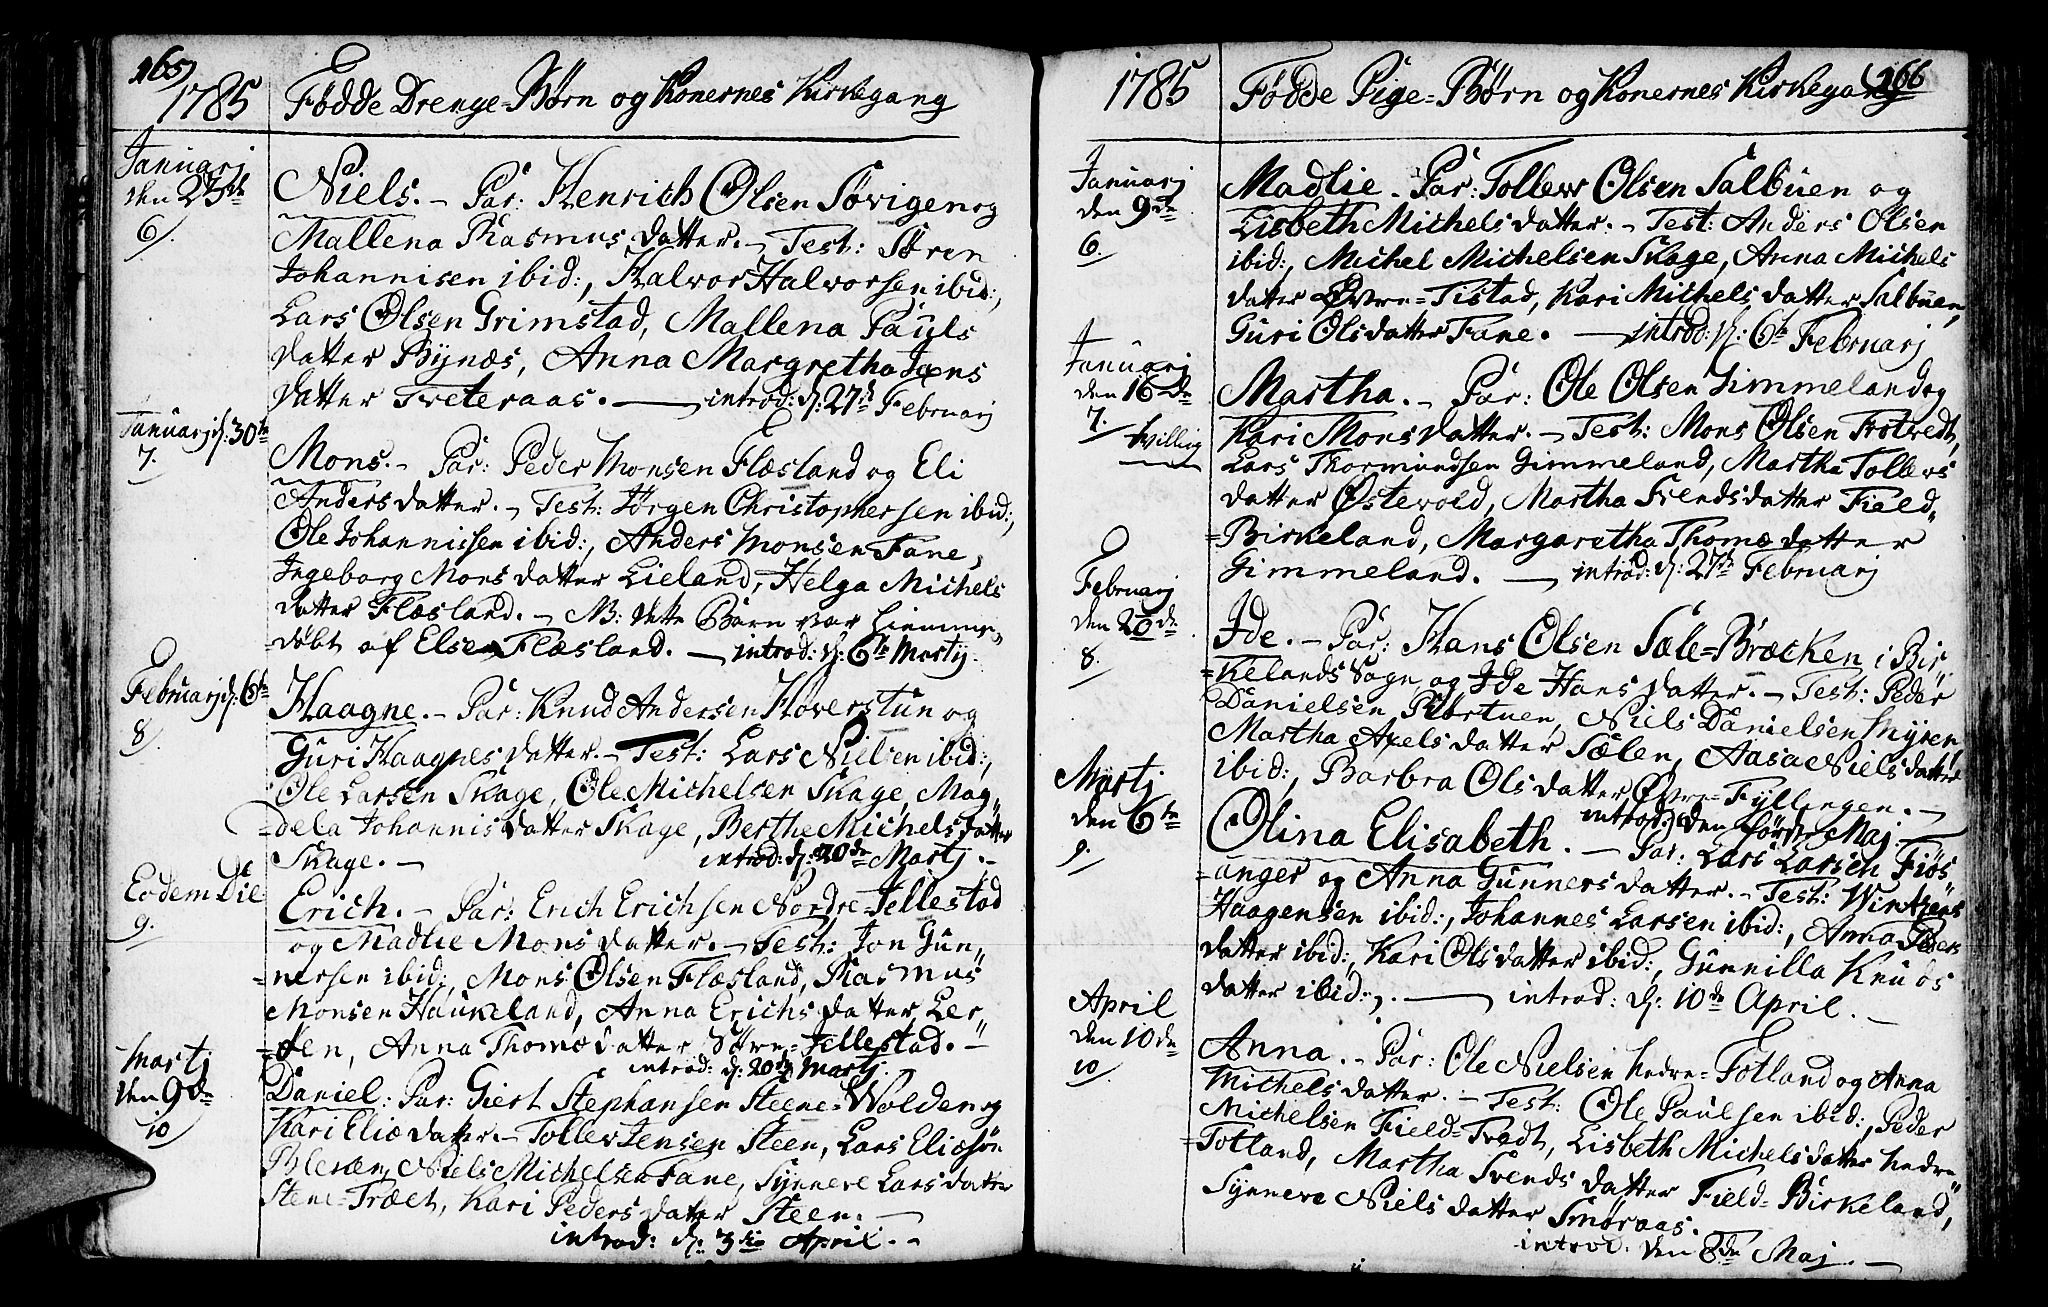 165
1785 Fødde Drenge-Børn og Konernes Kirkegang
Januarj
den 23de
6.
Niels. - Par: Henrich Olsen Søvigen og
Mallena Rasmus datter. - Test: Søren
Johannisen ibid:, Halvor Halvorsen ibid:,
Lars Olsen Grimstad, Mallena Pauls
datter Bynæs, Anna Margretha Jans
datter Tveteraas. - introd: d: 27de Februarj
Januarj d: 30te
7.
Mons. - Par: Peder Monsen Flæsland og Eli
Anders datter. - Test: Jørgen Christophersen ibid:,
Ole Johannissen ibid:, Anders Monsen Fane,
Ingeborg Mons datter Lieland, Helga Michels
datter Flæsland. - NB: dette Barn var hiemme-
døbt af Else Flæsland. - introd: d: 6te Martij.
Februarj d: 6te
8.
Haagne. - Par: Knud Andersen Hoverstun og
Guri Haagnes datter. - Test: Lars Nielsen ibid:,
Ole Larsen Skage, Ole Michelsen Skage, Mag-
=dela Johannis datter Skage, Berthe Michels datter
Skage. - introd: d: 20de Martj. -
Eodem Die
9.
Erich. - Par: Erich Erichsen Nordre-Jellestad
og Madlie Mons datter. - Test: Jon Gun-
=nersen ibid:, Mons Olsen Flæsland, Rasmus
Monsen Haukeland, Anna Erichs datter Ler-
=den, Anna Thomæ datter Søre-Jellestad. -
introd: d: 20de Martj.
Martj
den 9de
10
Daniel: Par: Giert Stephansen Steens-Wolden og
Kari Eliæ datter. - Toller Jensen Steen, Lars Eliesøn
Niels Michelsen Fane, Synneve Lars datter
Stene-Træet, Kari Peders datter Steen. -
introd: d: 3die April. -
166
1785 Fødde Pige-Børn og Konernes Kirkegang
Januarj
den 9de
6.
Madlie. Par: Tollew Olsen Salbuen og
Lisbeth Michels datter. - Test: Anders Olsen
ibid:, Michel Michelsen Skage, Anna Michels
datter Øvre-Tistad, Kari Michels datter Salbuen,
Guri Olsdatter Fane. - introd: d: 6te Februarj
Januarj
den 16de
7.
tvilling
Martha. - Par: Ole Olsen Gimmeland og
Kari Mons datter. - Test: Mons Olsen Trotvedt,
Lars Thormundsen Gimmeland, Martha Tollevs
datter Østevold, Martha Svends datter Field-
=Birkeland, Margaretha Thomæ datter
Gimmeland. - introd: d: 27de Februarj
Februarj
den 20de
8.
Ide. - Par: Hans Olsen Sæle-Bræcken i Bir-
=kelands Sogn og Ide Hans datter. - Test: Peder
Danielsen, Niels Danielsen Myren,
Martha Axels datter Sælen, Aasa Niels datter
ibid:, Barbra Ols datter Øvre-Fyllingen. -
introd: den første Maj
Martj
den 6te
9.
Olina Elisabeth. - Par: Lars Larsen Fiøs-
=anger og Anna Gunners datter. - Test:
Haagensen ibid:, Johannes Larsen ibid:, Anna Peders
datter ibid:, Kari Olsdatter ibid:, Gunnilla Knuds
datter ibid:,. - introd: d: 10de April. -
April
den 10de
10
Anna. - Par: Ole Nielsen Nedre-Totland og Anna
Michels datter. - Test: Ole Paulsen ibid:, Peder
Michelsen Field-Tvedt, Lisbeth Michels datter Nedre-
=Totland, Martha Svends datter Field-Birkeland,
Synneve Niels datter Smøraas.
introd: den 8de Maj. -